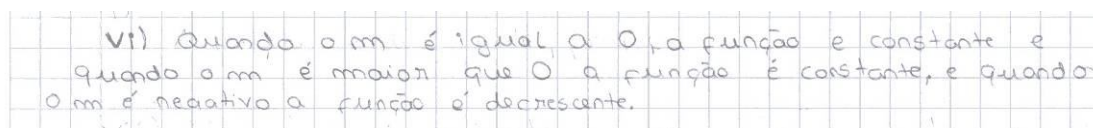 Vi) Quando o m é igual a 0, a função e constante e
quando o m é maior que 0 a função é constante, e quando
o m é negativo a função é decrescente.